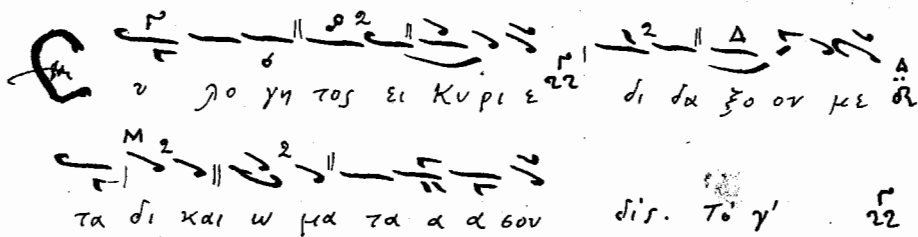 Ευ λο γη τος ει Κύ ρι ε δι δα ξο ον με
τα δι και ω μα τα α α σου δίς. Τό γ'